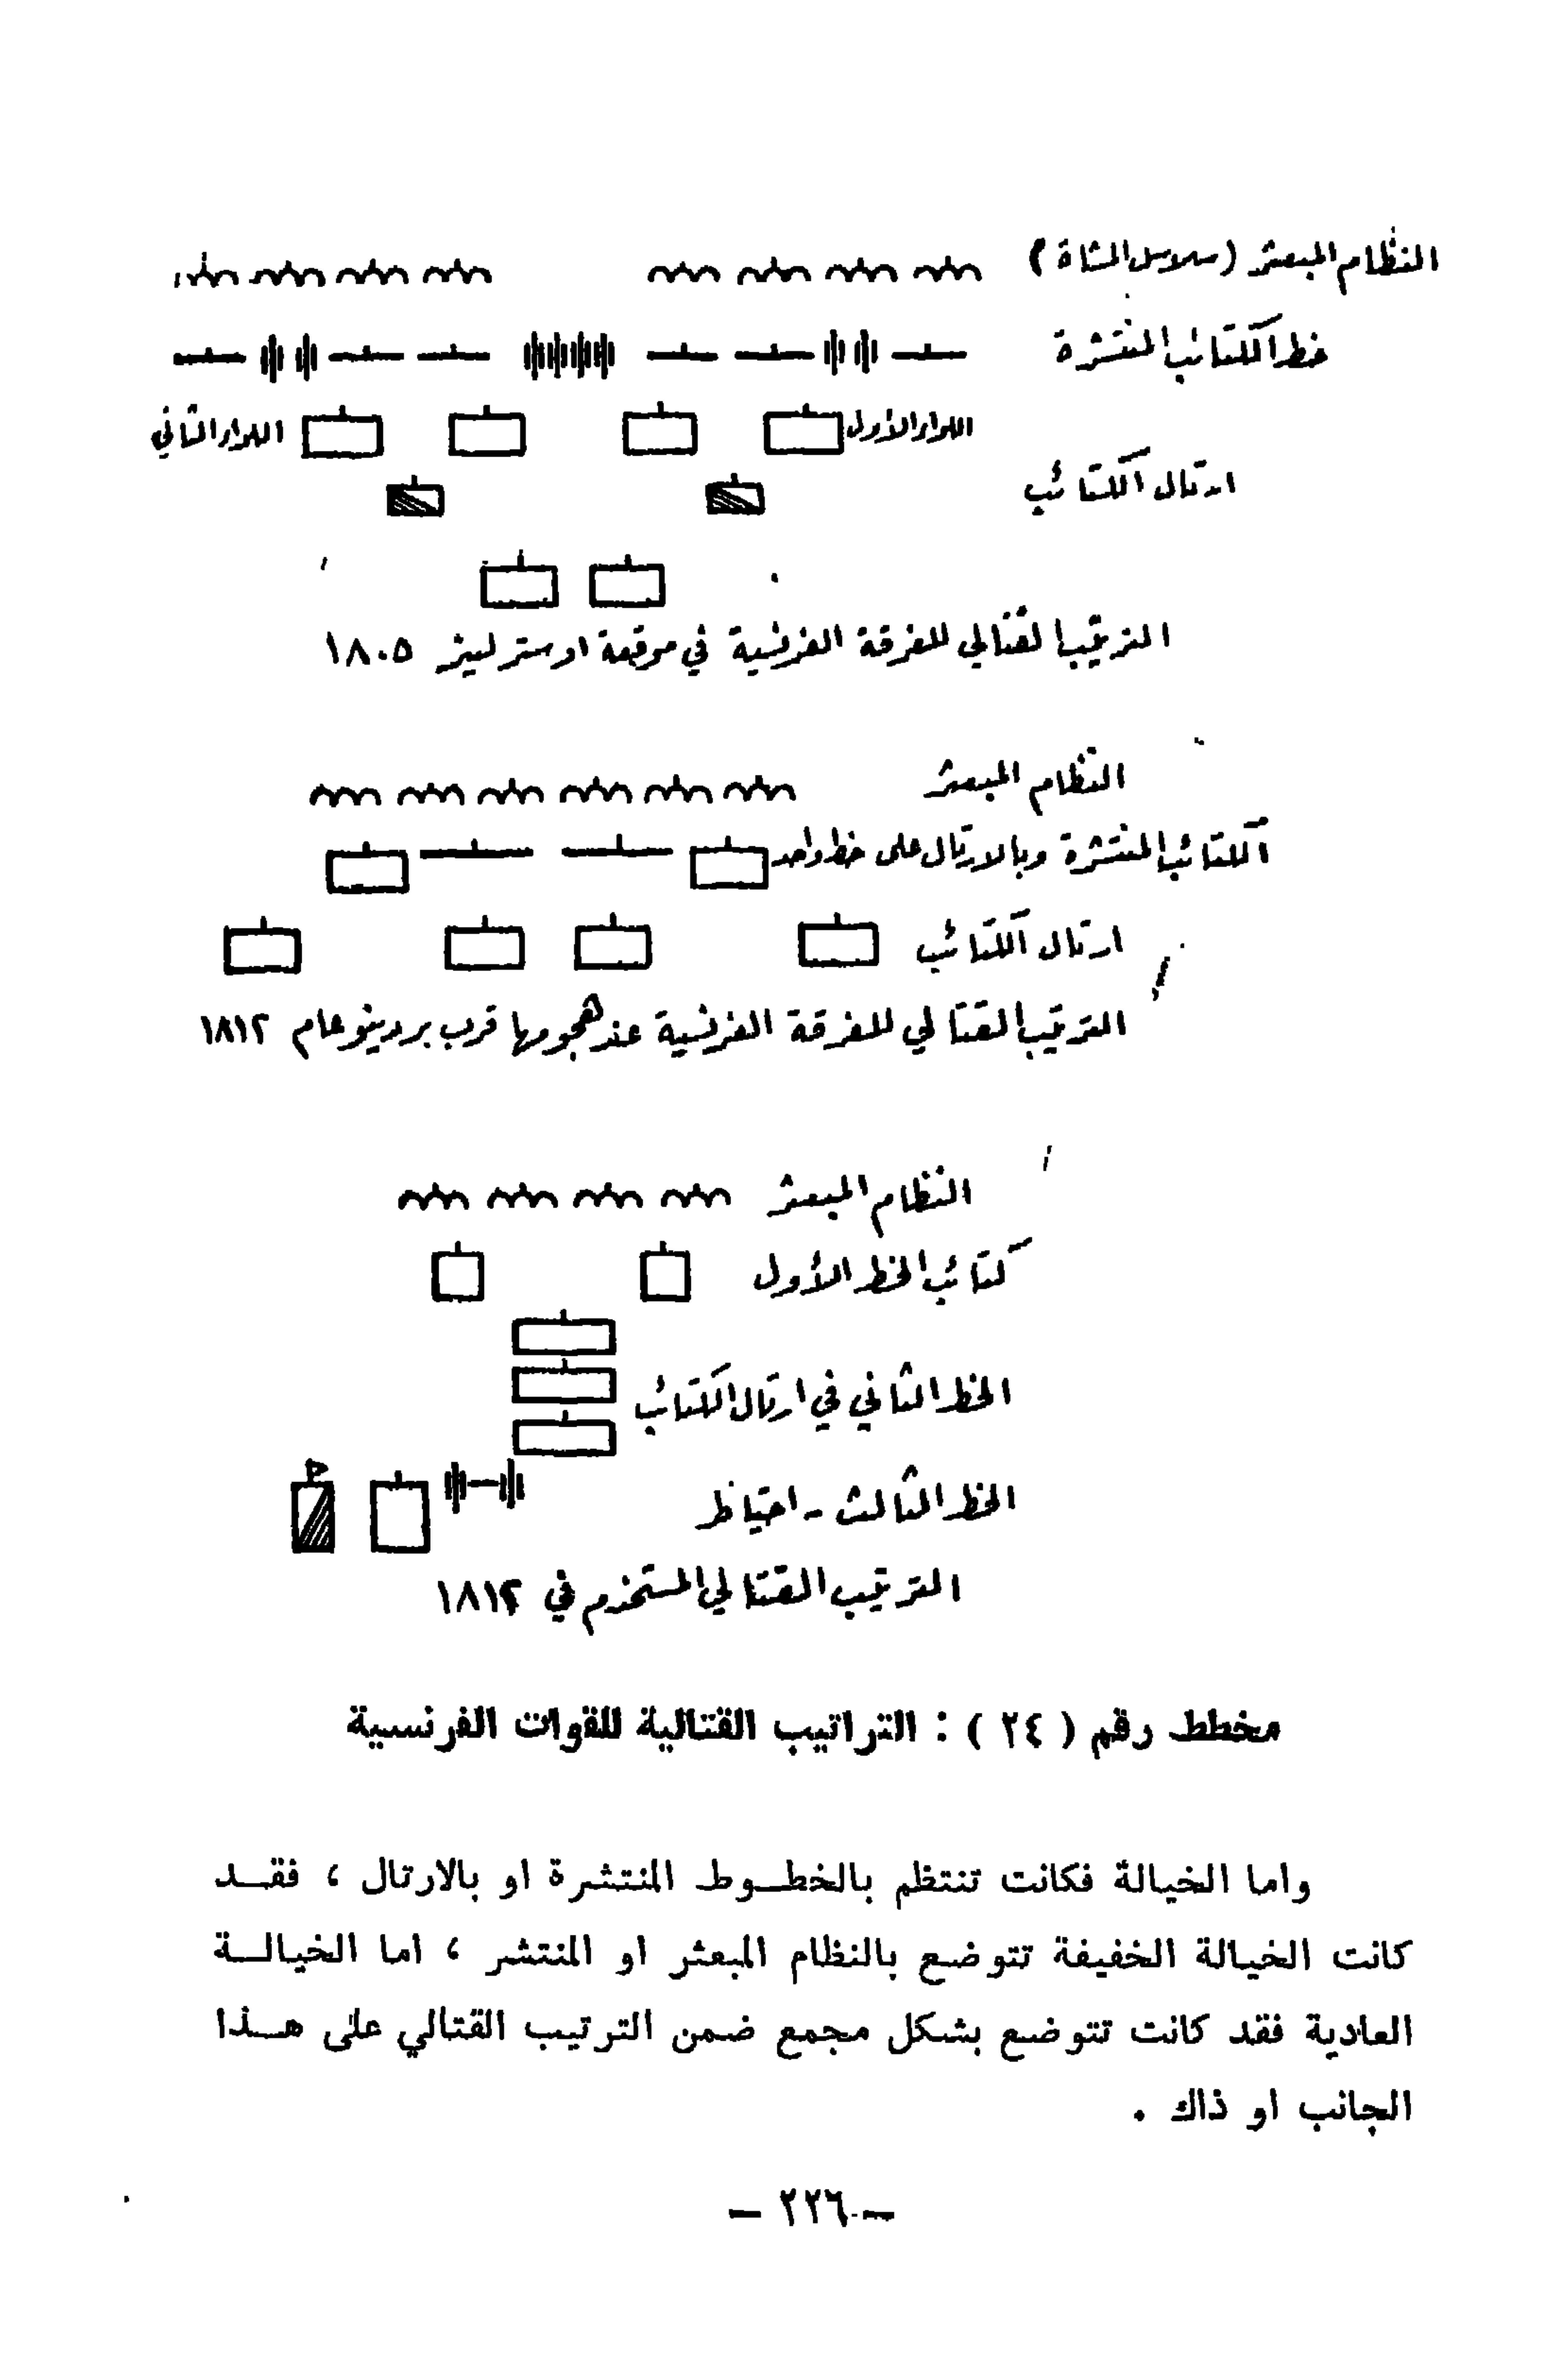 النظام المبعثر (سلاسل المشاة)
خط الكتائب المنتشرة
اللواء الأول
اللواء الثاني
ارتال الكتائب
الترتيب القتالي للفرقة الفرنسية في موقعة اوسترليز ١٨٠٥
النظام المبعثر
الكتائب المنتشرة وبالارتال على خط واحد
ارتال الكتائب
الترتيب القتالي للفرقة الفرنسية عند هجومها قرب بردينو عام ١٨١٢
النظام المبعثر
كتائب الخط الأول
الخط الثاني في ارتال الكتائب
الخط الثالث - احتياط
الترتيب القتالي المستخدم في
مخطط رقم ( ٢٤ ) : التراتيب القتالية للقوات الفرنسية
واما الخيالة فكانت تنتظم بالخطوط المنتشرة او بالارتال ، فقد
كانت الخيالة الخفيفة تتوضع بالنظام المبعثر او المنتشر ، اما الخيالة
العادية فقد كانت تتوضع بشكل مجمع ضمن الترتيب القتالي على هذا
الجانب او ذاك .
— ٢٢٦ —